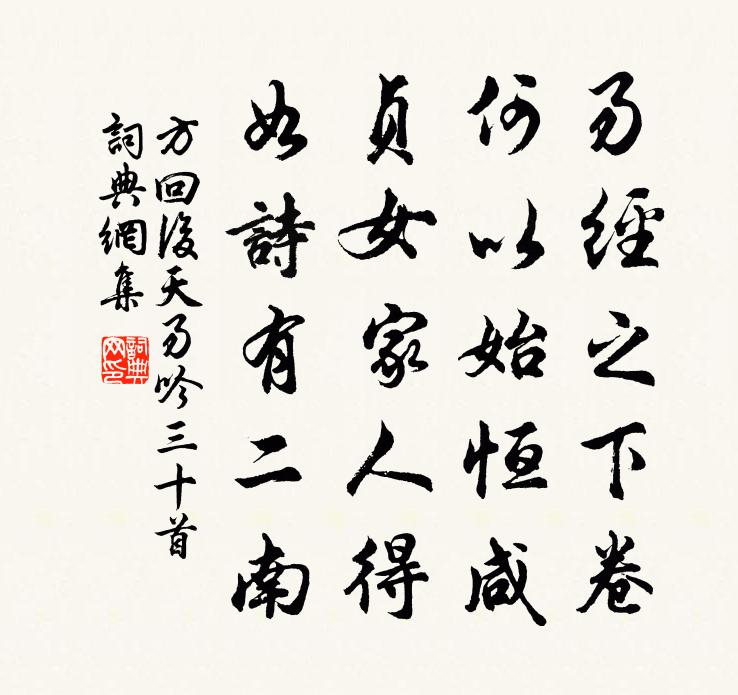 易經之下卷
何以始恒咸
貞女家人得
如詩有二南
方回後天易吟三十首
詞典網集
詞典網印